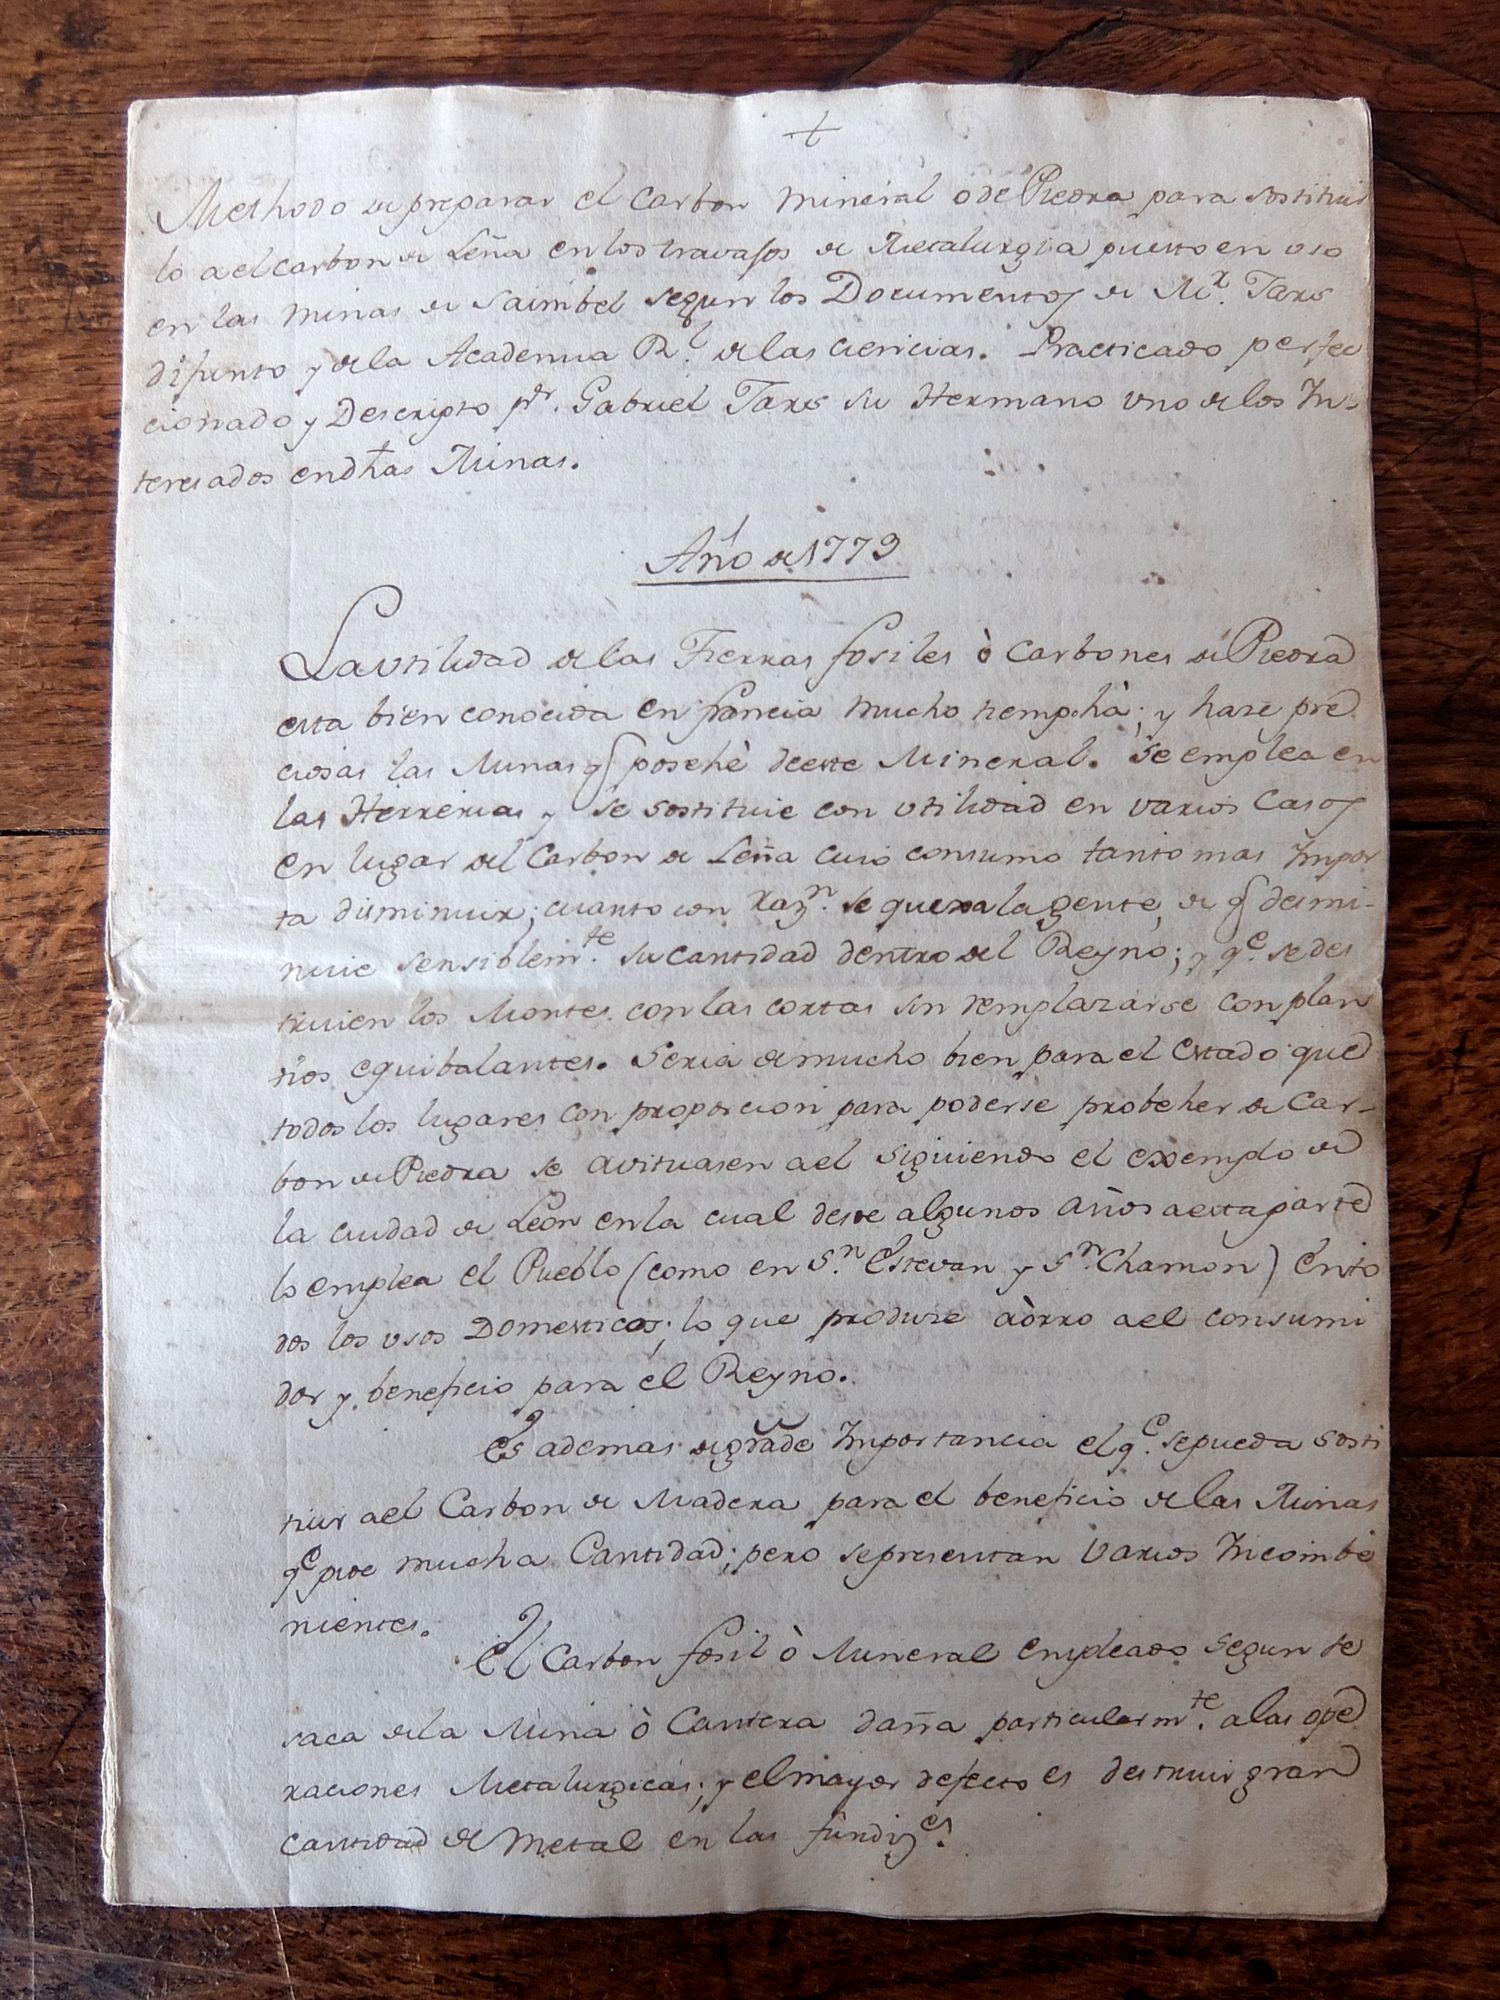 +
Methodo de preparar el Carbon Mineral o de Piedra para sostituir
lo a el carbon de Leña en los travajos de Metalurgia puesto en uso
en las Minas de Sainbel segun los Documentos de Mr. Jars
difunto y de la Academia Rl. de las ciencias. Practicado perfec
cionado y Descripto pr. Gabriel Jars su Hermano uno de los In-
teresados en dhas Minas.
Año de 1779
La utilidad de las Tierras fosiles ò Carbones de Piedra
esta bien conocida en francia mucho tiempo hà; y haze pre
ciosas las Minas q posehè de este Mineral. Se emplea en
las Herrerias y se sostituie con utilidad en varios Casos
en lugar del Carbon de Leña cuio consumo tanto mas Impor
ta disminuir; cuanto con Razn. se quexa la gente, de q desmi-
nuie sensiblemte. su cantidad dentro del Reyno; y qe. se des
truien los Montes con las cortas sin remplazarse con plan
tios equibalantes. Seria de mucho bien para el Estado que
todos los lugares con proporcion para poderse probeher de Car-
bon de Piedra se avituasen a el siguiendo el exemplo de
la ciudad de Leon en la cual desde algunos años a esta parte
lo emplea el Pueblo (como en Sn. Estevan y Sn. Chamon) en to
dos los usos Domesticos; lo que produze aòrro a el consumi
dor y beneficio para el Reyno.
Es ademas de grãde Importancia el qe. se pueda sosti
tuir a el Carbon de Madera para el beneficio de las Minas
qe. pide mucha Cantidad; pero se presentan varios Incombe
nientes.
El Carbon fosil ò Mineral empleado segun se
saca de la Mina ò Cantera daña particularmte. a las ope
raciones Metalurgicas; y el mayor defecto es destruir gran
cantidad de Metal en las fundizes.